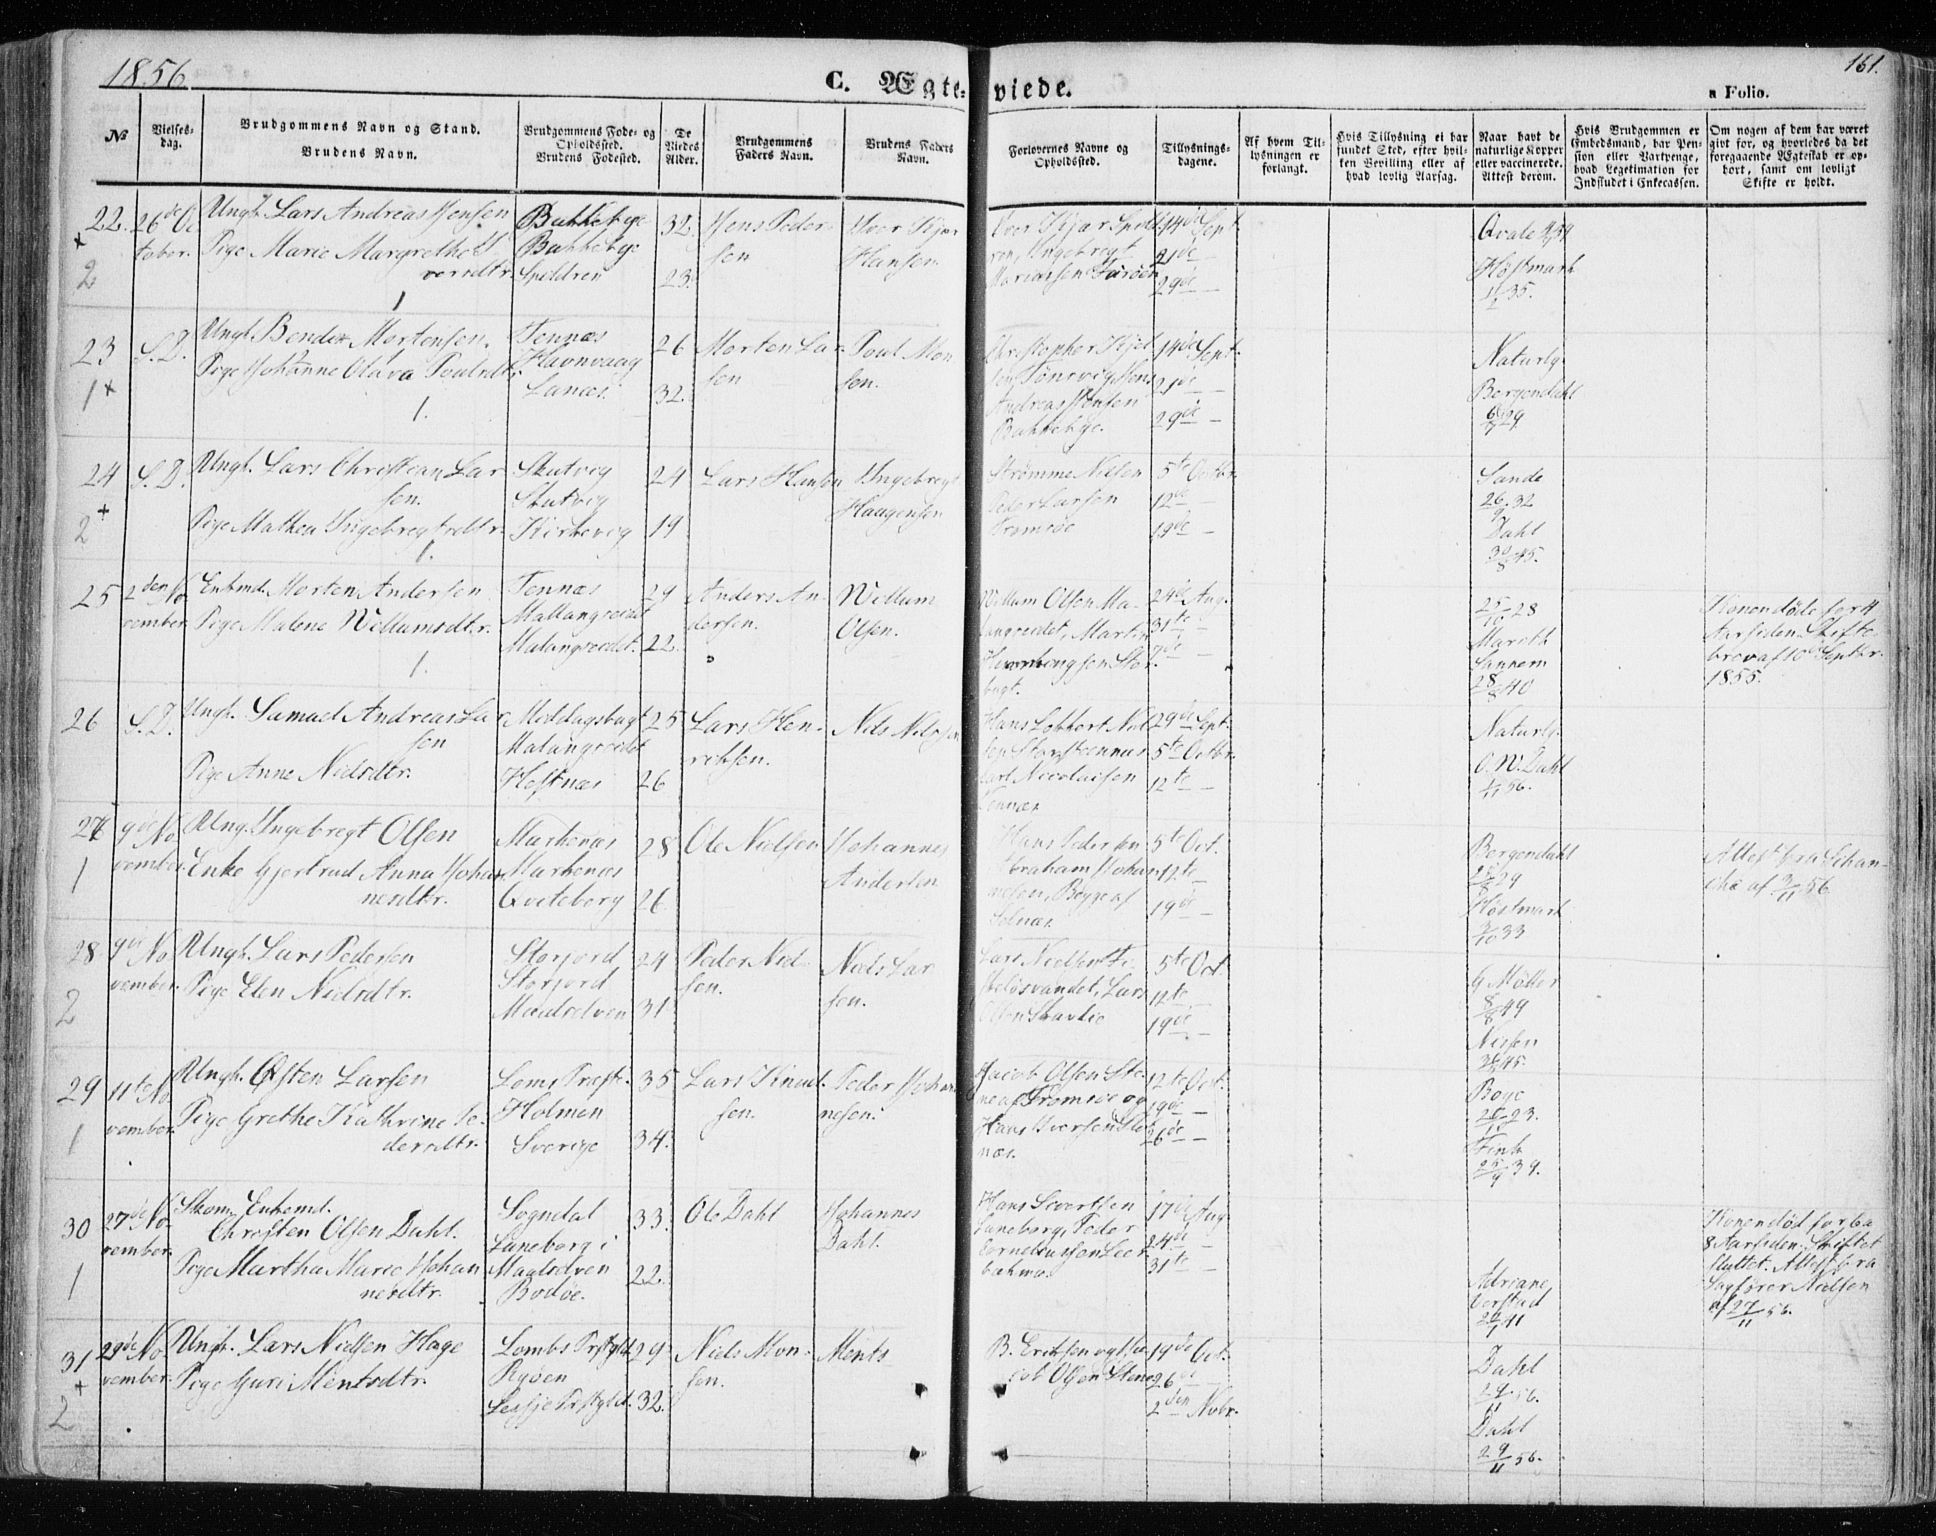 1856
161.
C. Ægte-
viede.
a Folio.
No
Vielses-
dag.
Brudgommens Navn og Stand.
Brudens Navn.
Brudgommens Føde- og
Opholdssted.
Brudens Fødested.
De
Viedes
Alder.
Brudgommens
Faders Navn.
Brudens Faders
Navn.
Forlovernes Navne og
Opholdssted.
Tillysnings-
dagene.
Af hvem Til-
lysningen er
forlangt.
Hvis Tillysning ei har
fundet Sted, efter hvil-
ken Bevilling eller af
hvad lovlig Aarsag.
Naar havt de
naturlige Kopper
eller vaccinerede.
Attest derom.
Hvis Brudgommen er
Embedsmand, har Pen-
sion eller Vartpenge,
hvad Legitimation for
Indskudet i Enkecassen.
Om nogen af dem har været
givt før, og hvorledes da det
foregaaende Ægteskab er op-
hørt, samt om lovligt
Skifte er holdt.
22. 26de Oc
tober.
Ungk. Lars Andreas Jensen
Pige Marie Margrethe
Bakkebye
Bakkebye
Spildren
32
23.
Jens Peder-
sen
Iver Kjær
Hansen.
Iver Kjær Spild
ren, Ingebregt
14de Sept
21de —
29de —
Qvale
Høstmark
35.
2
1
23
S. D.
Ungk. Bendix Mortensen.
Pige Johanne Olava Poulsdtr.
1.
Tennæs
Havnvaag
Lanæs.
26
32.
Morten Lar
sen
Poul Mon
sen.
Christopher Kjel
Andreas Jensen
Bakkebye.
14de Sept.
21de —
29de —
Naturlg
Bergendahl
29
1+
24
S. D.
Ungk. Lars Christian Lar
sen.
Pige Mathea Ingebregtsdtr.
1.
Skutvig
Skutvig
Kirkevig
24
19
Lars Hansen
Ingebregt
Haagensen
Strømme Nielsen
Peder Larsen
Tromsøe
5te Octbr.
12de —
19de —
Sande
26 32
9
Dahl
30 45.
8
2+
25
2den No
vember
Enkmd. Morten Andersen
Pige Malene Willumsdtr.
1.
Tennæs
Mallangseidet
Malangseidet.
29
22.
Anders An-
dersen.
Willum
Olsen.
Willum Olsen Ma-
langseidet, Martin
Henningsen Stor
bugt.
24de Aug.
31te —
7de —
25 28
10
Sannem
28 40
Konen døde for 4
Aar siden. Skifte
brev af 10de Septbr.
1855.
26
S. D.
Ungk. Samuel Andreas Lar
sen
Pige Anne Nielsdtr.
Middagsbugt
Malangseidet
Hestnæs
25
26
Lars Hen-
riksen.
Niels Nielsen
Storsteennæs
Carl Nicolaisen
Tennæs
29de Sept.
5te Octbr.
12te —
Naturlg.
O. W. Dahl
56.
27
9de No
vember.
Ungk. Ingebregt Olsen
Enke Gjertrud Anna Johan
nesdtr.
Markenæs
Markenæs
Qviteberg
28
26
Ole Nielsen
Johannes
Andersen
Hans Pedersen
Abraham Johan
nesen, Begge af
Solnæs
5te Oct.
12te —
19de —
Bergendahl
29
Høstmark
33
Attest fra
af 3/11 56.
1
28
9de No
vember.
Ungk. Lars Pedersen
Pige Elen Nielsdtr.
Storjord
Storjord
Maalselven
24
31
Peder Niel-
sen.
Niels Lar
sen.
Lars Nielsen
vandet, Lars
5te Oct.
12te —
19de —
G Møller
8/8 49
45.
2
29
11te No
vember.
Ungk. Østen Larsen
Pige Grethe Kathrine Pe-
dersdtr.
Loms Præste-
Holmen
Sverige
35
34.
Lars Knud-
sen.
Peder Johan
nesen.
Jacob Olsen Ste-
ne af Tromsøe og
Hans Iversen Slet
næs.
12te Oct.
19de —
26de —
Boye
23.
Fink
25/9 39.
1
30
27de No
vember.
Skom. Enkemd.
Christen Olsen Dahl.
Pige Martha Marie Johan
nesdtr.
Sogndal
Laneborg i
Maalselven
Bodøe.
33.
22.
Ole Dahl
Johannes
Dahl.
Hans Sivertsen
Laneborg, Peder
Corneliussen Leer
bakmo.
17de Aug
24de —
31te —
Adriane
41
Konen død for ca
8 Aar siden. Skiftet
sluttet. Attest fra
Sagfører Nielsen
af 27/11 56.
1
31
29de No
vember.
Ungk. Lars Nielsen Hage
Pige Guri Mentsdtr.
Lombs Præstgld
Ryøen
Lessje Præstgld.
29
32.
Niels Mon-
sen.
Ments
B. Eriksen og Ja-
cob Olsen Stene
19de Oct.
26de —
2den Nvbr.
Dahl
29/11 56.
Dahl
29/11 56.
2